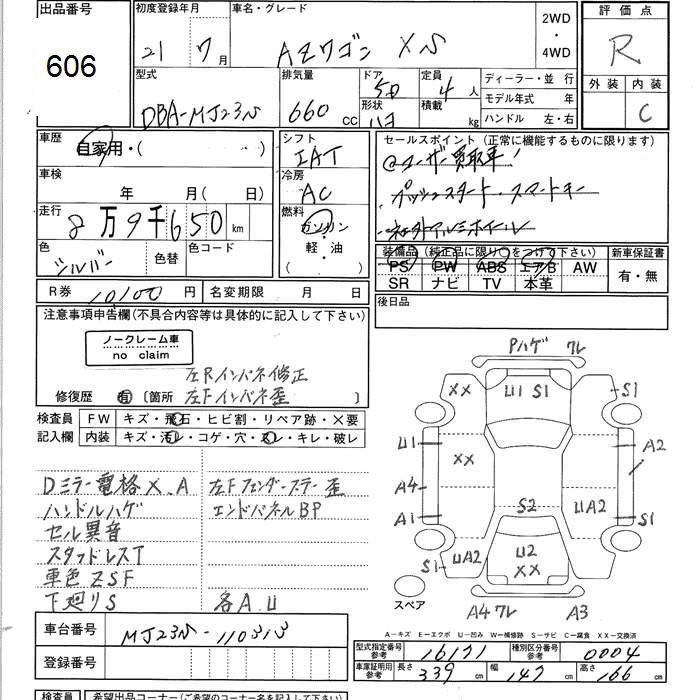 出品番号 初度登録年月 車名・グレード 2WD・4WD 評価点
606 21 7月 AZワゴン XS R
型式 排気量 ドア 定員 ディーラー・並行 外装 内装
DBA-MJ23S 660cc 5D 4人 モデル年式 年 C
形状 積載 kg ハンドル 左・右
車歴 自家用・( ) シフト IAT セールスポイント(正常に機能するものに限ります)
車検 年 月( ) 冷房 AC @ユーザー買取車!
走行 8万9千650km 燃料 ガソリン プッシュスタート・スマートキー
色 シルバー 色替 色コード 軽・油 社外アルミホイール
装備品(純正品に限り○をつけ下さい) 新車保証書
PS PW ABS エアB AW 有・無
SR ナビ TV 本革
R券 10100円 名変期限 月 日 後日品
注意事項申告欄(不具合内容等は具体的に記入して下さい)
ノークレーム車
no claim
左Rインパネ修正
修復歴 有〔箇所 左Fインパネ歪〕
検査員 FW キズ・飛石・ヒビ割・リペア跡・×要
記入欄 内装 キズ・汚レ・コゲ・穴・スレ・キレ・破レ
Dミラー電格×.A 左Fフェンダーステー歪
ハンドルハゲ エンドパネルBP
セル異音
スタッドレスT
車色ZSF
下廻りS 各A.U
Pハゲ フレ
XX U1 S1 S1
U1 A2
XX
A4
A1 S2 UA2 S1
S1 UA2 U2 XX
スペア A4フレ A3
A-キズ E-エクボ U-凹み W-補修跡 S-サビ C-腐食 XX-交換済
車台番号 MJ23S-110313
型式指定番号 参考 16131 種別区分番号 参考 0004
登録番号
車庫証明用 参考 長さ 339cm 幅 147cm 高さ 166cm
検査員 希望出品コーナー(ご希望のコーナー名を記入して下さい)